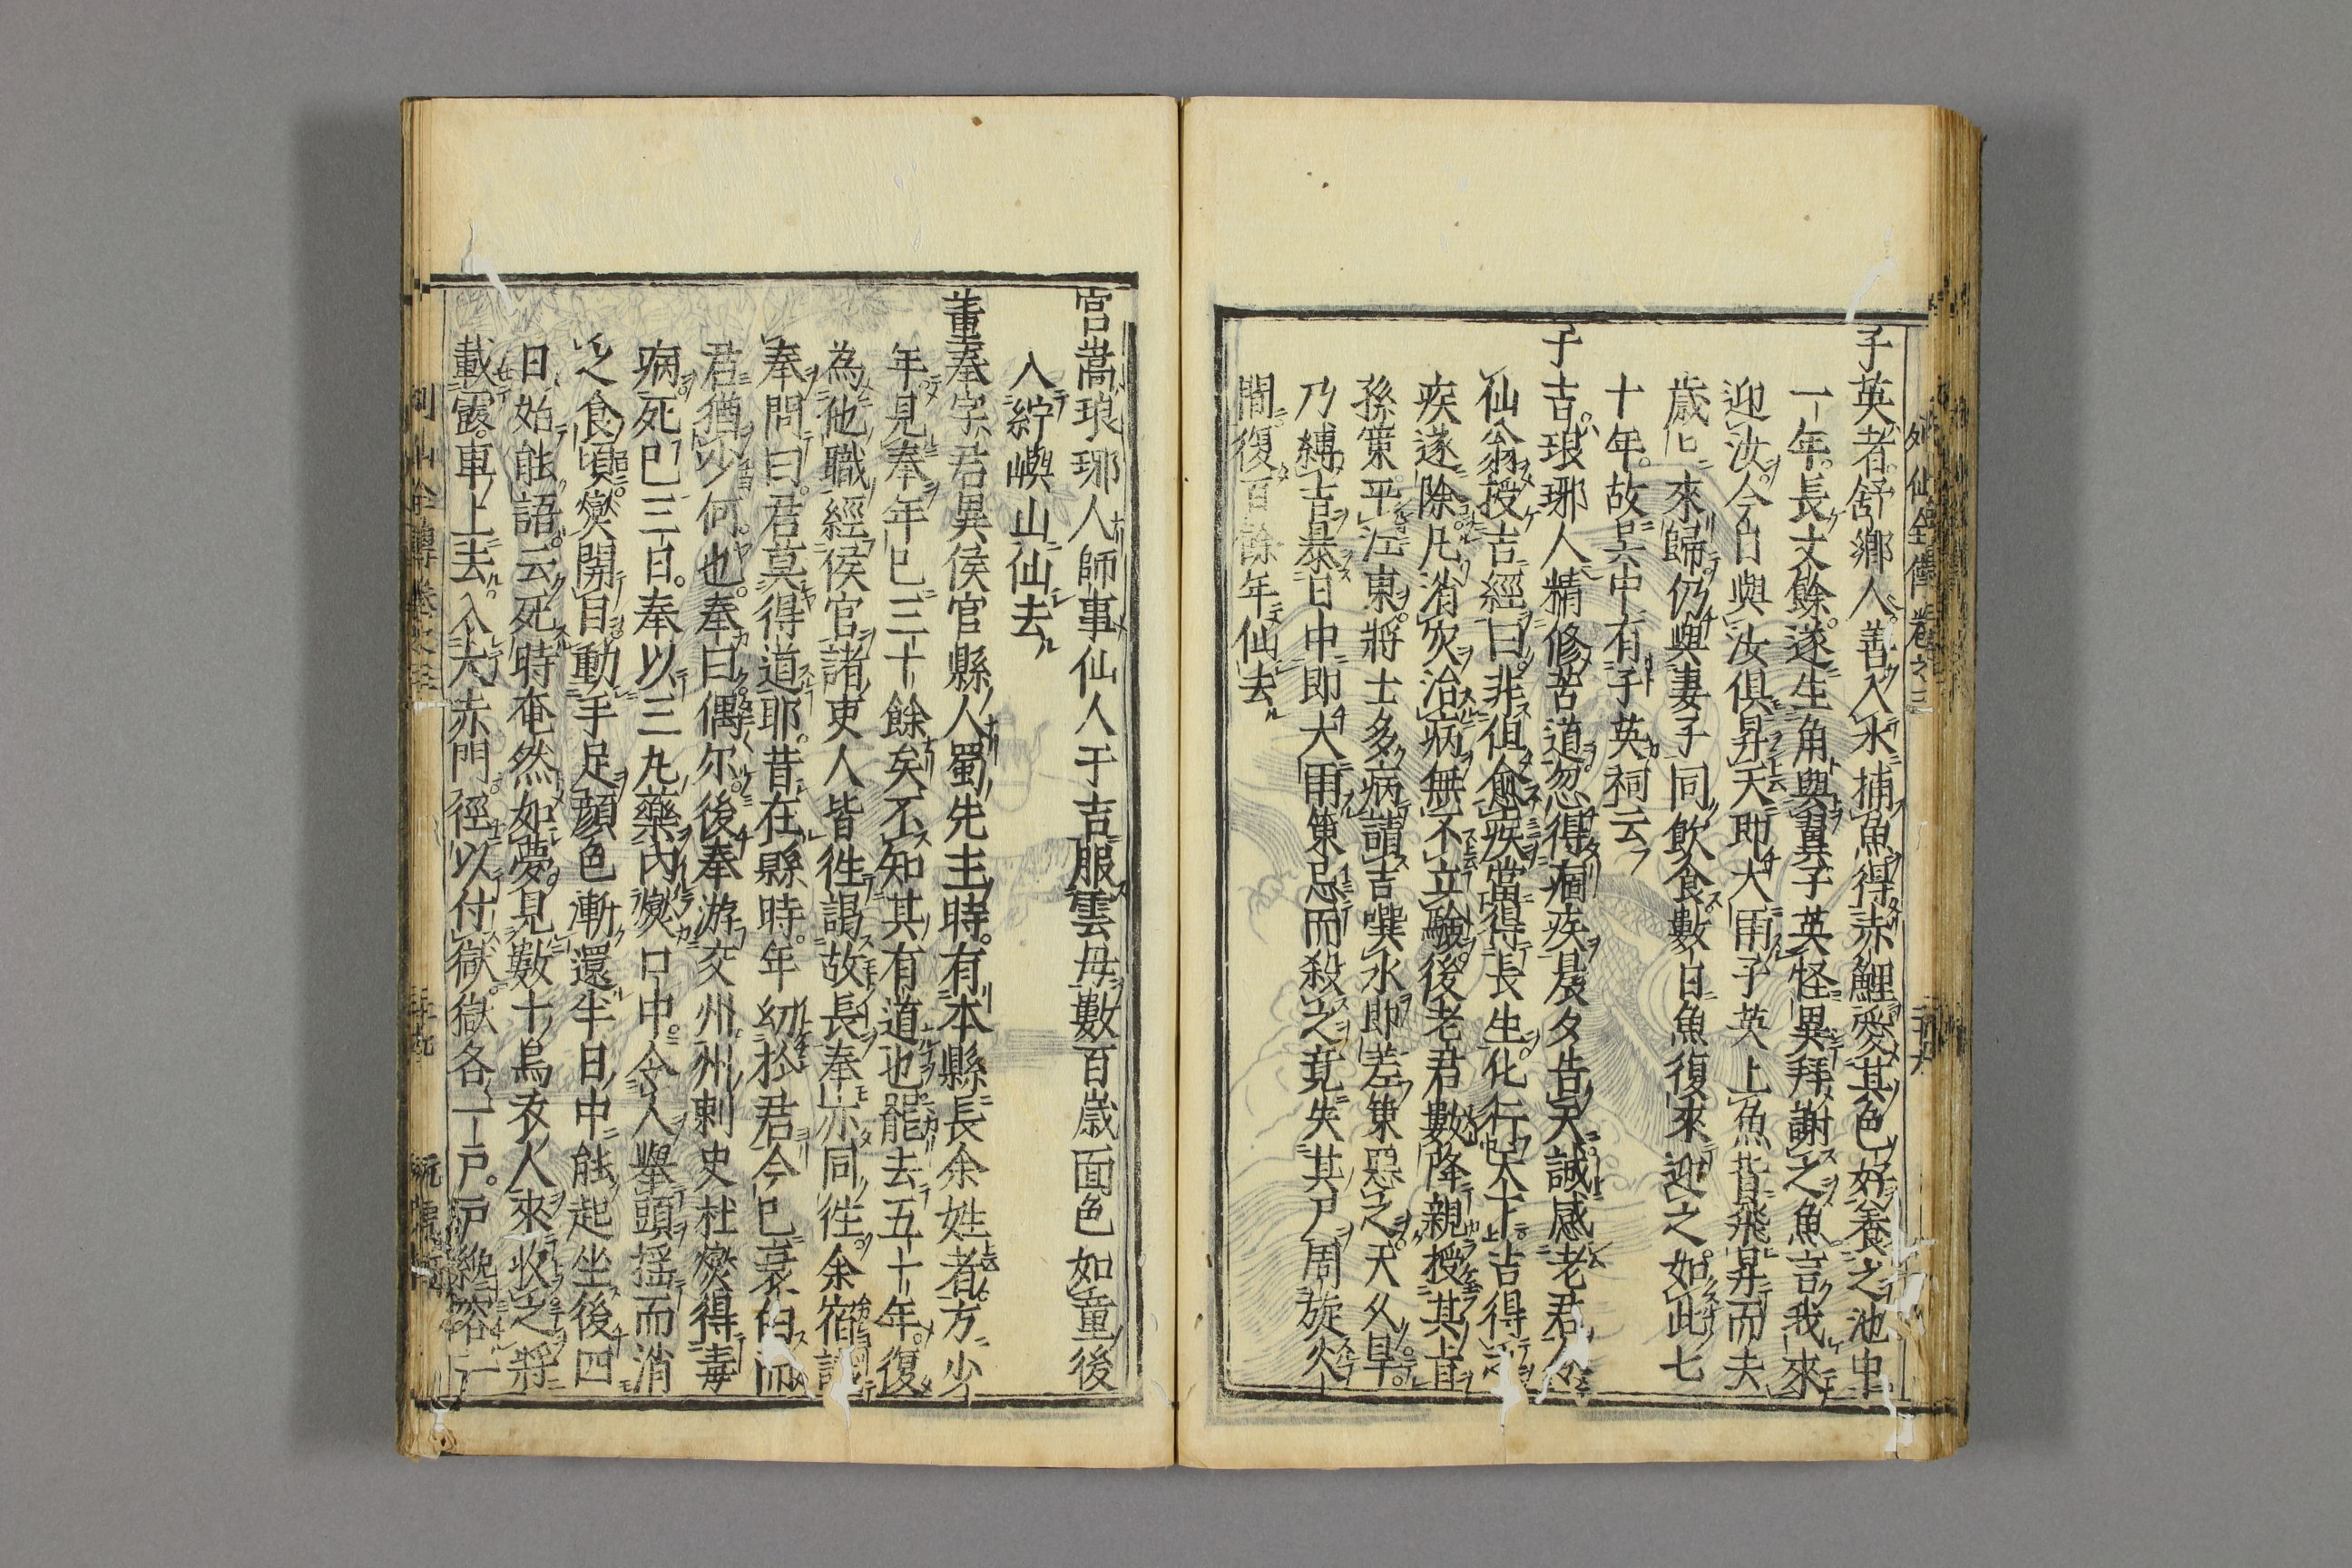 子英者舒鄉人善入水捕魚得赤鯉愛其色好養之池中
一年長丈餘遂生角與翼子英怪異拜謝之魚言我來
迎汝今日與汝俱昇天即大雨子英上魚背飛昇而去
歳〻來歸仍與妻子同飲食數日魚復來迎之如此七
十年故吳中有子英祠云
于吉琅琊人精修苦道忽得痼疾晨夕告天誠感老君令
仙翁授吉經曰非但愈疾當得長生化行天下吉得之
疾遂除凡消災治病無不立驗後老君數降親授其旨
孫策平江東將士多病請吉噀水即差策惡之天久旱
乃縛吉暴日中即大雨策忌而殺之竟失其尸周旋人
間復百餘年仙去
宮嵩琅琊人師事仙人于吉服雲母數百歳面色如童後
入紵嶼山仙去
董奉字君異侯官縣人蜀先主時有本縣長余姓者方少
年見奉年已三十餘矣不知其有道也罷去五十年復
為他職經侯官諸吏人皆徃謁故長奉亦同徃余宿識
奉問曰君莫得道耶昔在縣時年紉於君今已衰白而
君猶少何也奉曰偶尔後奉游交州州刺史杜燮得毒
病死已三日奉以三丸藥内燮口中令人舉頭揺而消
之食頃燮開目動手足顔色漸還半日中能起坐後四
日始能語云死時奄然如夢見數十烏衣人來收之將
載露車上去入大赤門徑以付獄獄各一戸戸纔容一